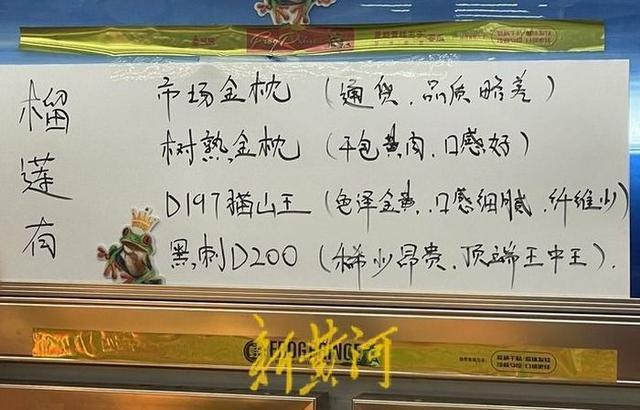 榴莲有
市场金枕（通货、品质略差）
树熟金枕（干包黄肉、口感好）
D197猫山王（色泽金黄、口感细腻、纤维少）
黑刺D200（稀少昂贵、顶端王中王）.
新黄河